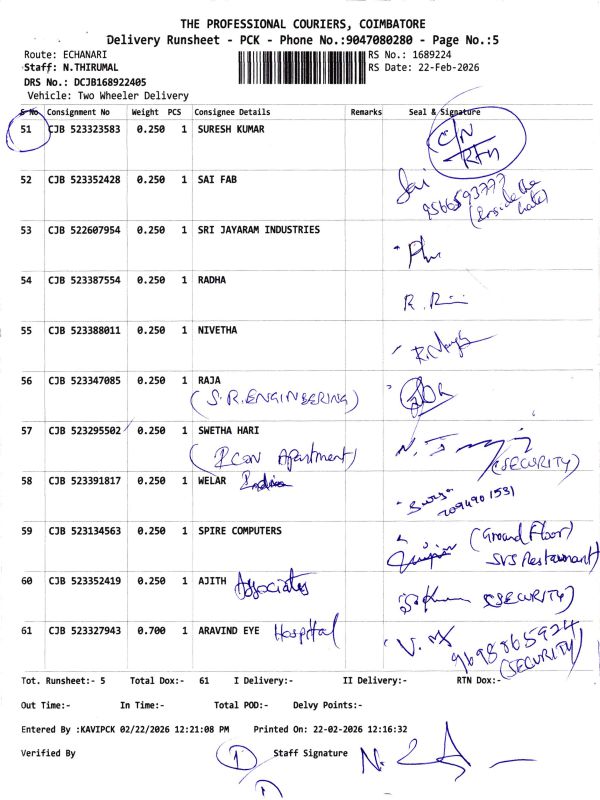 THE PROFESSIONAL COURIERS, COIMBATORE
Delivery Runsheet - PCK - Phone No.:9047080280 - Page No.:5
Route: ECHANARI
RS No.: 1689224
Staff: N.THIRUMAL
RS Date: 22-Feb-2026
DRS No.: DCJB168922405
Vehicle: Two Wheeler Delivery
S No. Consignment No Weight PCS Consignee Details Remarks Seal & Signature
51 CJB 523323583 0.250 1 SURESH KUMAR C/N
RTN
52 CJB 523352428 0.250 1 SAI FAB Sai
53 CJB 522607954 0.250 1 SRI JAYARAM INDUSTRIES
54 CJB 523387554 0.250 1 RADHA
55 CJB 523388011 0.250 1 NIVETHA
56 CJB 523347085 0.250 1 RAJA
(S.R.ENGINEERING)
57 CJB 523295502 0.250 1 SWETHA HARI
Apartment) (SECURITY)
58 CJB 523391817 0.250 1 WELAR
59 CJB 523134563 0.250 1 SPIRE COMPUTERS (Ground Floor)
SVS Restaurant)
60 CJB 523352419 0.250 1 AJITH Associates (SECURITY)
61 CJB 523327943 0.700 1 ARAVIND EYE Hospital
9698865924
(SECURITY)
Tot. Runsheet:- 5 Total Dox:- 61 I Delivery:- II Delivery:- RTN Dox:-
Out Time:- In Time:- Total POD:- Delvy Points:-
Entered By :KAVIPCK 02/22/2026 12:21:08 PM Printed On: 22-02-2026 12:16:32
Verified By 1 Staff Signature